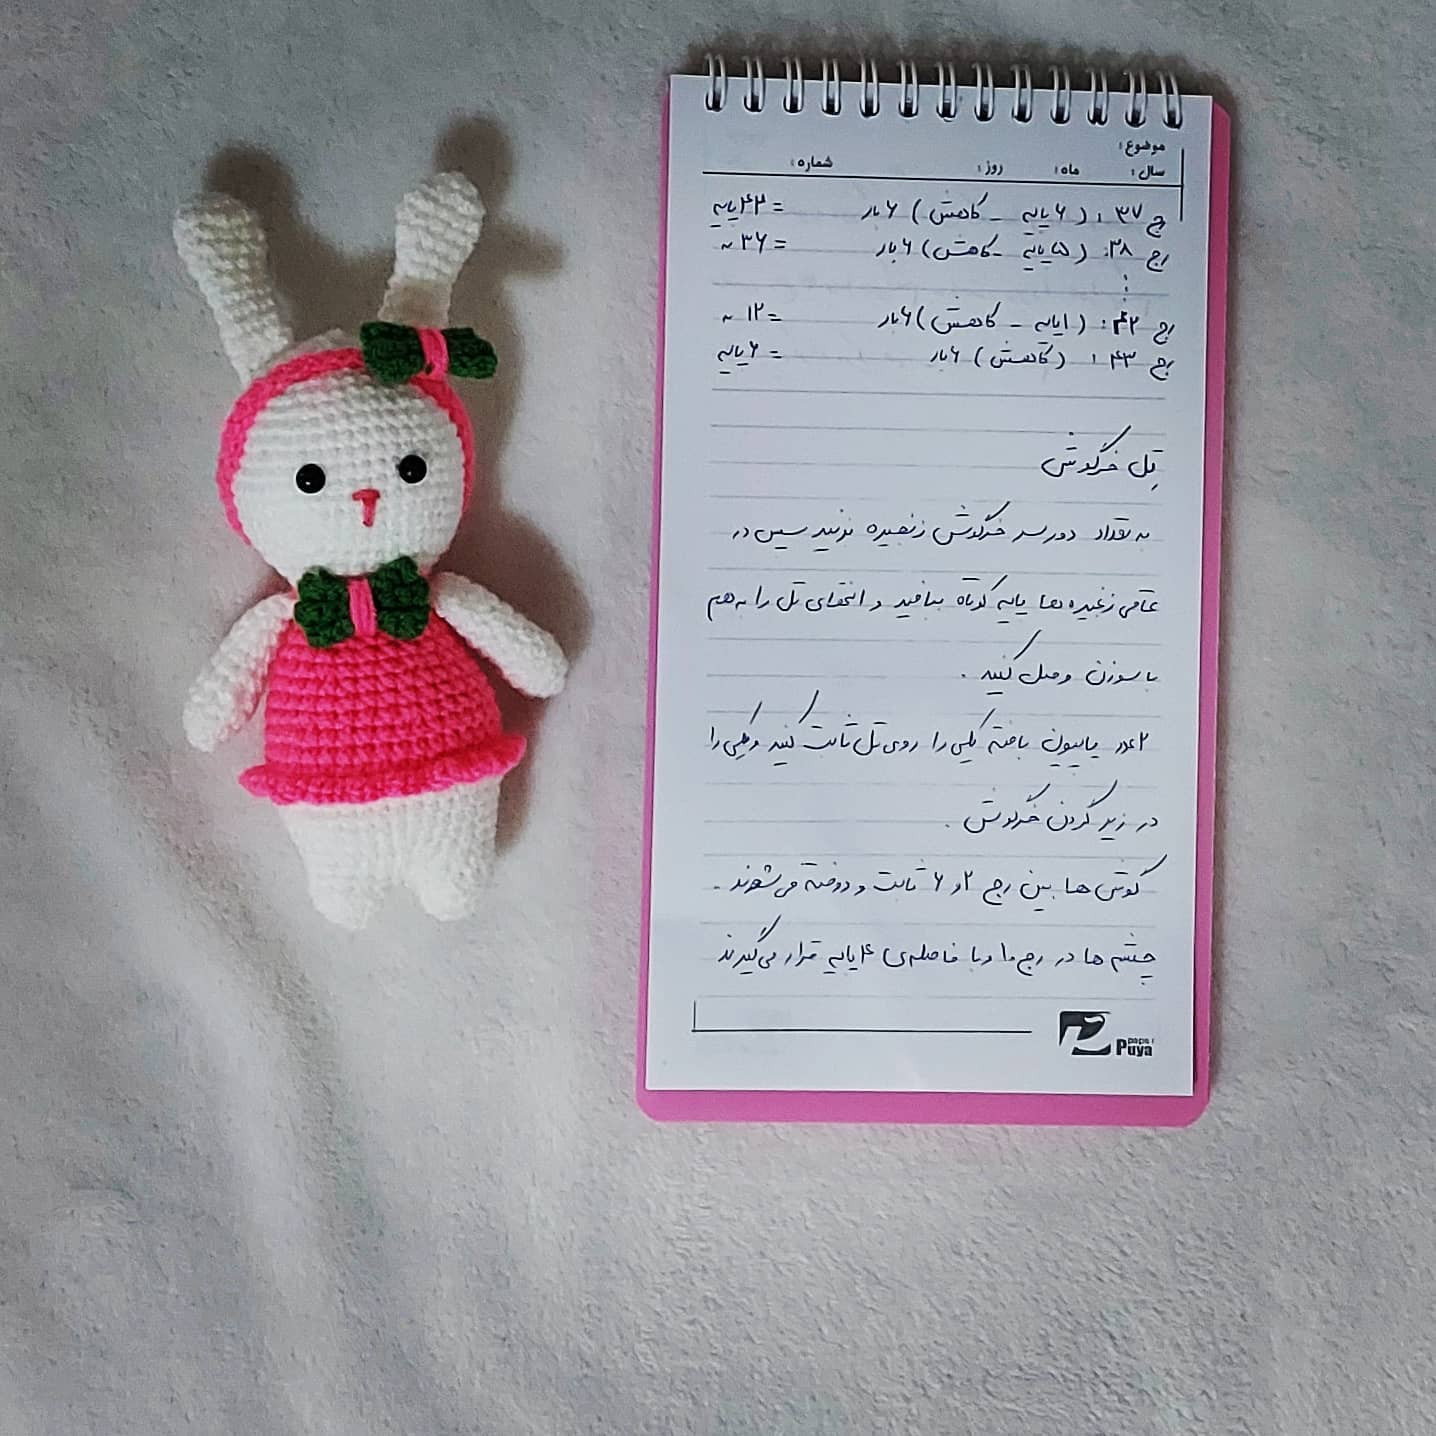 موضوع:
سال: ماه: روز: شماره:
رج ۳۷: (۶ پایه - کاهش) ۶ بار = ۴۲ پایه
رج ۳۸: (۵ پایه - کاهش) ۶ بار = ۳۶ ~
⋮
رج ۴۲: (۱ پایه - کاهش) ۶ بار = ۱۲ ~
رج ۴۳: (کاهش) ۶ بار = ۶ پایه
تِل خرگوش
به تعداد دور سر خرگوش زنجیره بزنید سپس در
تمامی زنجیره ها پایه کوتاه ببافید و انتهای تل را به هم
با سوزن وصل کنید.
۲ عدد پاپیون بافته یکی را روی تل ثابت کنید و یکی را
در زیر گردن خرگوش.
گوش ها بین رج ۲ و ۶ ثابت و دوخته می شوند.
چشم ها در رج ۱۰ و با فاصله ی ۴ پایه قرار می گیرند
Puya